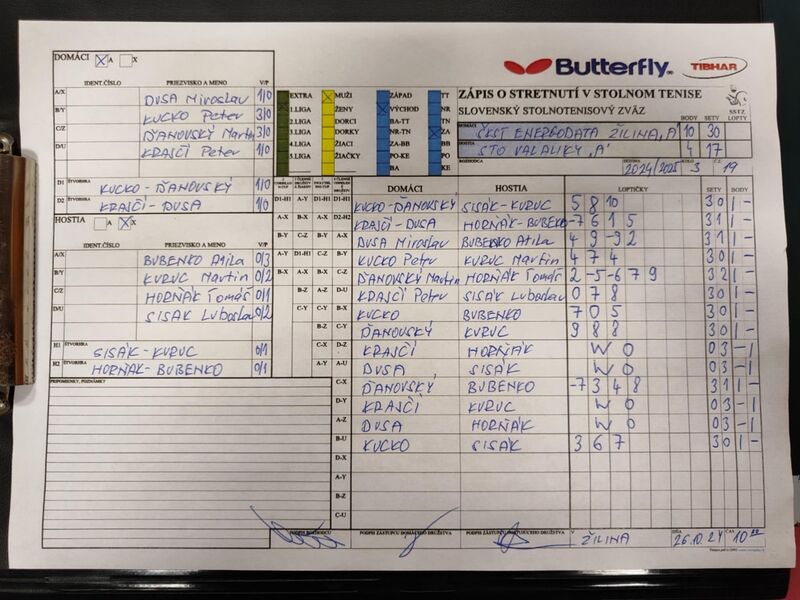 DOMÁCI X A X
IDENT.ČÍSLO PRIEZVISKO A MENO V/P
A/X DUSA Miroslav 1/0
B/Y KUCKO Peter 3/0
C/Z ĎANOVSKÝ Martin 3/0
D/U KRAJČÍ Peter 1/0
D1 ŠTVORHRA KUCKO - ĎANOVSKÝ 1/0
D2 KRAJČÍ - DUSA 1/0
HOSTIA A X X
IDENT.ČÍSLO PRIEZVISKO A MENO V/P
A/X BUBENKO Atila 0/3
B/Y KURUC Martin 0/2
C/Z HORŇÁK Tomáš 0/1
D/U SISÁK Luboslav 0/2
H1 ŠTVORHRA SISÁK - KURUC 0/1
H2 ŠTVORHRA HORŇÁK - BUBENKO 0/1
PRIPOMIENKY, POZNÁMKY
EXTRA MUŽI ZÁPAD TT
1.LIGA ŽENY VÝCHOD NR
2.LIGA DORCI BA-TT TN
3.LIGA DORKY NR-TN ZA
4.LIGA ŽIACI ZA-BB BB
5.LIGA ŽIAČKY PO-KE PO
BA KE
Butterfly TIBHAR
ZÁPIS O STRETNUTÍ V STOLNOM TENISE
SLOVENSKÝ STOLNOTENISOVÝ ZVÄZ SSTZ
BODY SETY LOPTY
DOMÁCI ČKST ENERGODATA ŽILINA "A" 10 30
HOSTIA STO VALALIKY "A" 4 17
ROZHODCA SEZÓNA 2024/2025 KOLO 3 Č. 19
DOMÁCI HOSTIA LOPTIČKY SETY BODY
D1-H1 A-Y D1-H1 D1-H1 KUCKO-ĎANOVSKÝ SISÁK-KURUC 5 8 10 3 0 1 -
A-X B-X A-X D2-H2 KRAJČÍ - DUSA HORŇÁK-BUBENKO -7 6 1 5 3 1 1 -
B-Y C-Z B-Y A-X DUSA Miroslav BUBENKO Atila 4 9 -9 2 3 1 1 -
A-Y D1-H1 C-Z B-Y KUCKO Peter KURUC Martin 4 7 4 3 0 1 -
B-X A-X B-X C-Z ĎANOVSKÝ Martin HORŇÁK Tomáš 2 -5 -6 7 9 3 2 1 -
B-Z A-Z D-U KRAJČÍ Peter SISÁK Luboslav 0 7 8 3 0 1 -
C-Y C-Y B-X KUCKO BUBENKO 7 0 5 3 0 1 -
B-Z C-Y ĎANOVSKÝ KURUC 9 8 8 3 0 1 -
C-X D-Z KRAJČÍ HORŇÁK W O 0 3 - 1
A-Y A-U DUSA SISÁK W O 0 3 - 1
C-X ĎANOVSKÝ BUBENKO -7 3 4 8 3 1 1 -
D-Y KRAJČÍ KURUC W O 0 3 - 1
A-Z DUSA HORŇÁK W O 0 3 - 1
B-U KUCKO SISÁK 3 6 7 3 0 1 -
D-X
A-Y
B-Z
C-U
PODPIS ROZHODCU PODPIS ZÁSTUPCU DOMÁCEHO DRUŽSTVA PODPIS ZÁSTUPCU HOSŤUJÚCEHO DRUŽSTVA V ŽILINA DŇA 26.10.24 ČAS 10 00